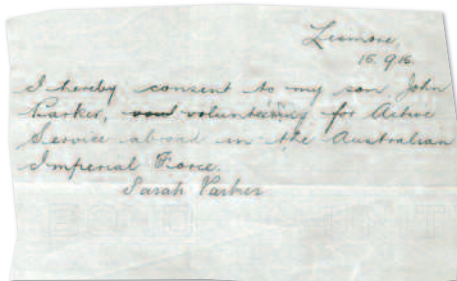 Lismore,
15.9.16.
I hereby consent to my son, John
Parker, volunteering for Active
Service abroad in the Australian
Imperial Force.
Sarah Parker